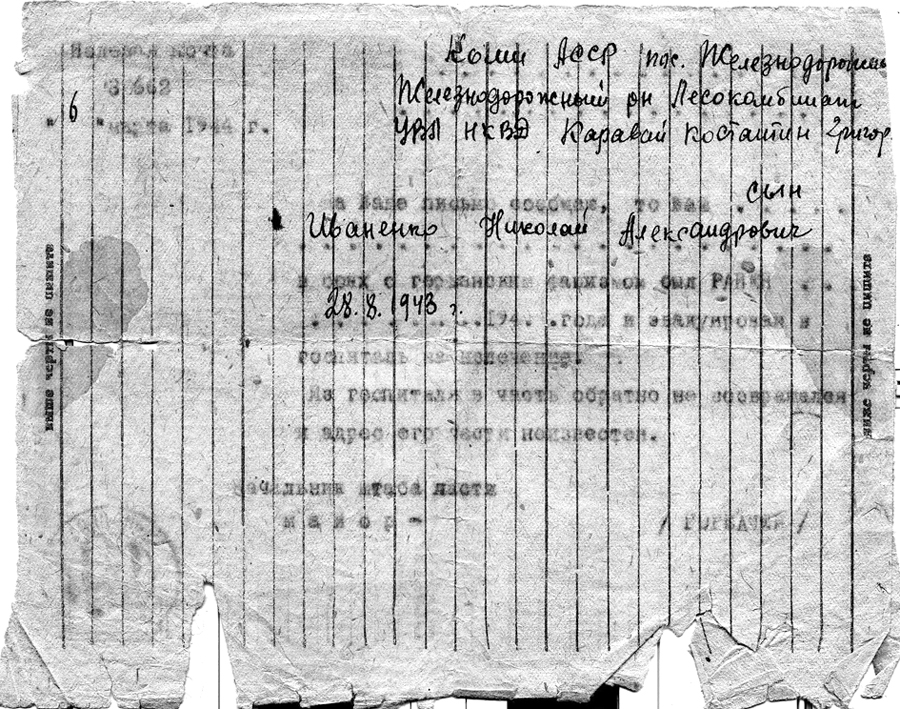 Полевая почта
Коми АССР пос. Железнодорожный
З.662
Железнодорожный рн Лесокомбинат
" 6 " марта 1944 г.
УРЛ НКВД Каравай Костантин Григор
На Ваше письмо сообщаю, то Ваш . . сын . .
Иваненко Николай Александрович
в боях с германским фашизмом был РАНЕН . . .
28.8.1943 г.
194 . года и эвакуирован в
госпиталь на излечение.
Из госпиталя в часть обратно не возвращался
и адрес его части неизвестен.
Начальник штаба части
майор - / ГОРБАЧЕВ /
выше черты не пишите
ниже черты не пишите